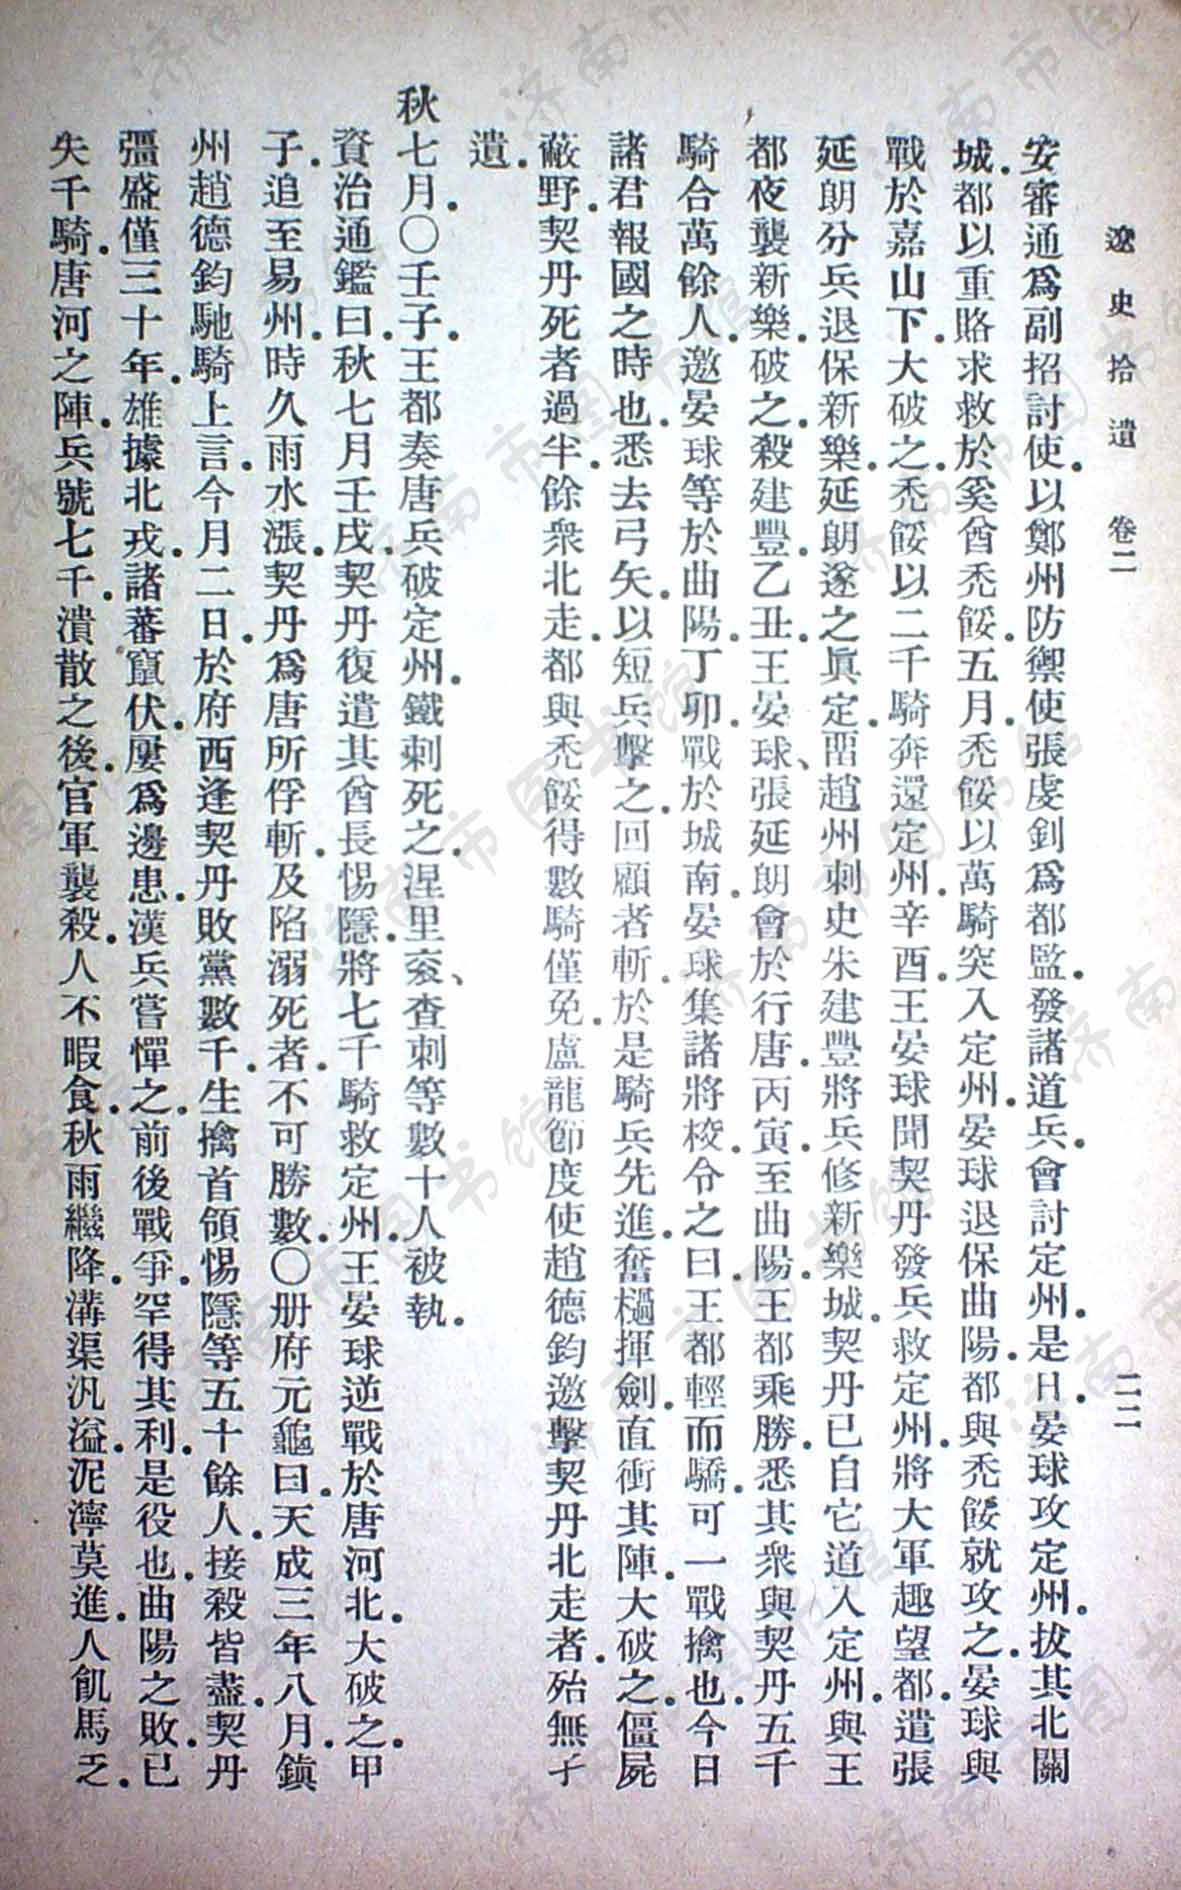 遼史拾遺 卷二 二二
安審通爲副招討使。以鄭州防禦使張虔釗爲都監。發諸道兵。會討定州。是日。晏球攻定州。拔其北關
城。都以重賂求救於奚酋禿餒。五月。禿餒以萬騎突入定州。晏球退保曲陽。都與禿餒就攻之。晏球與
戰於嘉山下。大破之。禿餒以二千騎奔還定州。辛酉。王晏球聞契丹發兵救定州。將大軍趣望都。遣張
延朗分兵退保新樂。延朗遂之眞定。畱趙州刺史朱建豐將兵修新樂城。契丹已自它道人定州。與王
都夜襲新樂。破之。殺建豐。乙丑。王晏球、張延朗會於行唐。丙寅。至曲陽。王都乘勝。悉其衆與契丹五千
騎合萬餘人。邀晏球等於曲陽。丁卯。戰於城南。晏球集諸將校。令之曰。王都輕而驕。可一戰擒也。今日
諸君報國之時也。悉去弓矢。以短兵擊之。回顧者斬。於是騎兵先進。奮檛揮劍。直衝其陣。大破之。僵屍
蔽野。契丹死者過半。餘衆北走。都與禿餒得數騎僅免。盧龍節度使趙德鈞邀擊契丹。北走者。殆無孑
遺。
秋七月。〇壬子。王都奏唐兵破定州。鐵剌死之。涅里袞、查剌等數十人被執。
資治通鑑曰。秋七月壬戌。契丹復遣其酋長惕隱。將七千騎救定州。王晏球逆戰於唐河北。大破之。甲
子。追至易州。時久雨水漲。契丹爲唐所俘斬。及陷溺死者。不可勝數。〇册府元龜曰。天成三年八月。鎭
州趙德鈞馳騎上言。今月二日。於府西逢契丹敗黨數千。生擒首領惕隱等五十餘人。接殺皆盡。契丹
彊盛僅三十年。雄據北戎。諸蕃竄伏。屢爲邊患。漢兵嘗憚之。前後戰爭。罕得其利。是役也。曲陽之敗。已
失千騎。唐河之陣。兵號七千。潰散之後。官軍襲殺。人不暇食。秋雨繼降。溝渠汎溢。泥濘莫進。人飢馬乏。